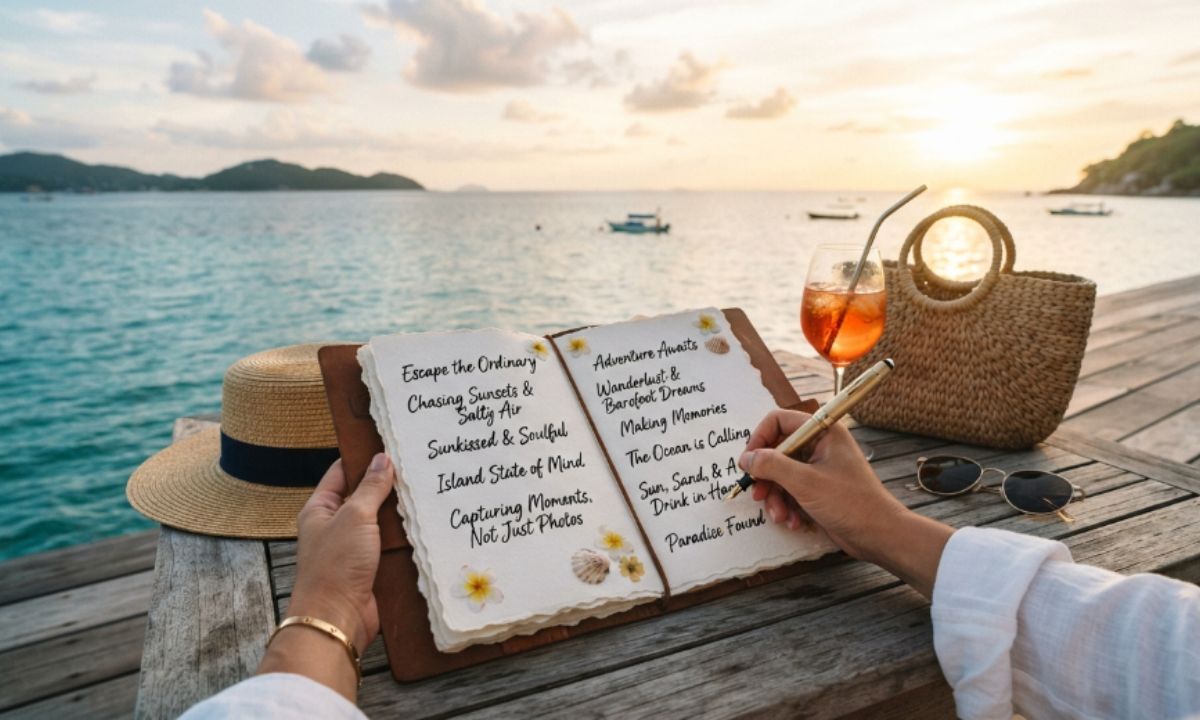 Escape the Ordinary
Chasing Sunsets &
Salty Air
Sunkissed & Soulful
Island State of Mind
Capturing Moments,
Not Just Photos
Adventure Awaits
Wanderlust &
Barefoot Dreams
Making Memories
The Ocean is Calling
Sun, Sand, & A
Drink in
Paradice Found